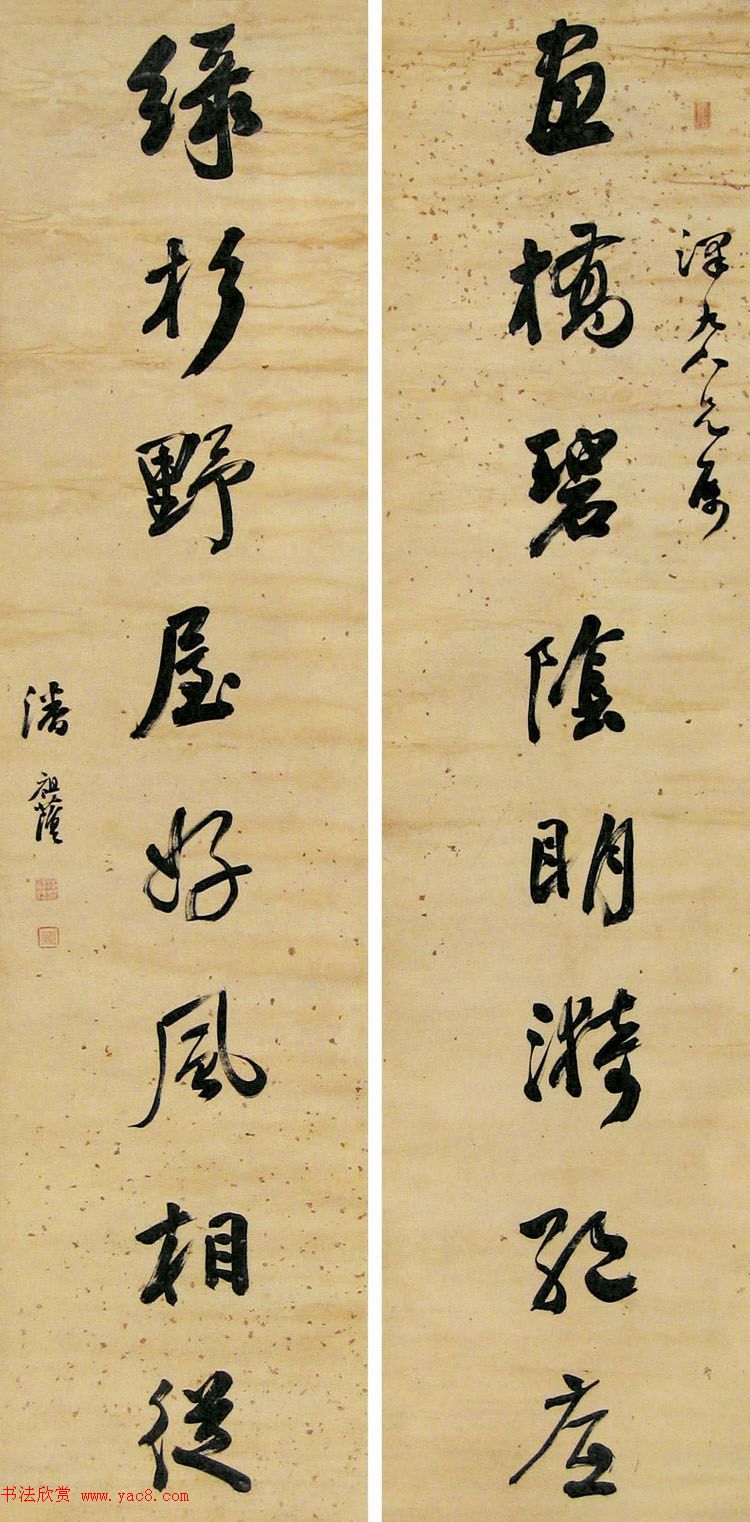 澤九大兄屬
畫橋碧陰明漪絕底
綠杉野屋好風相從
潘祖蔭
书法欣赏 www.yac8.com